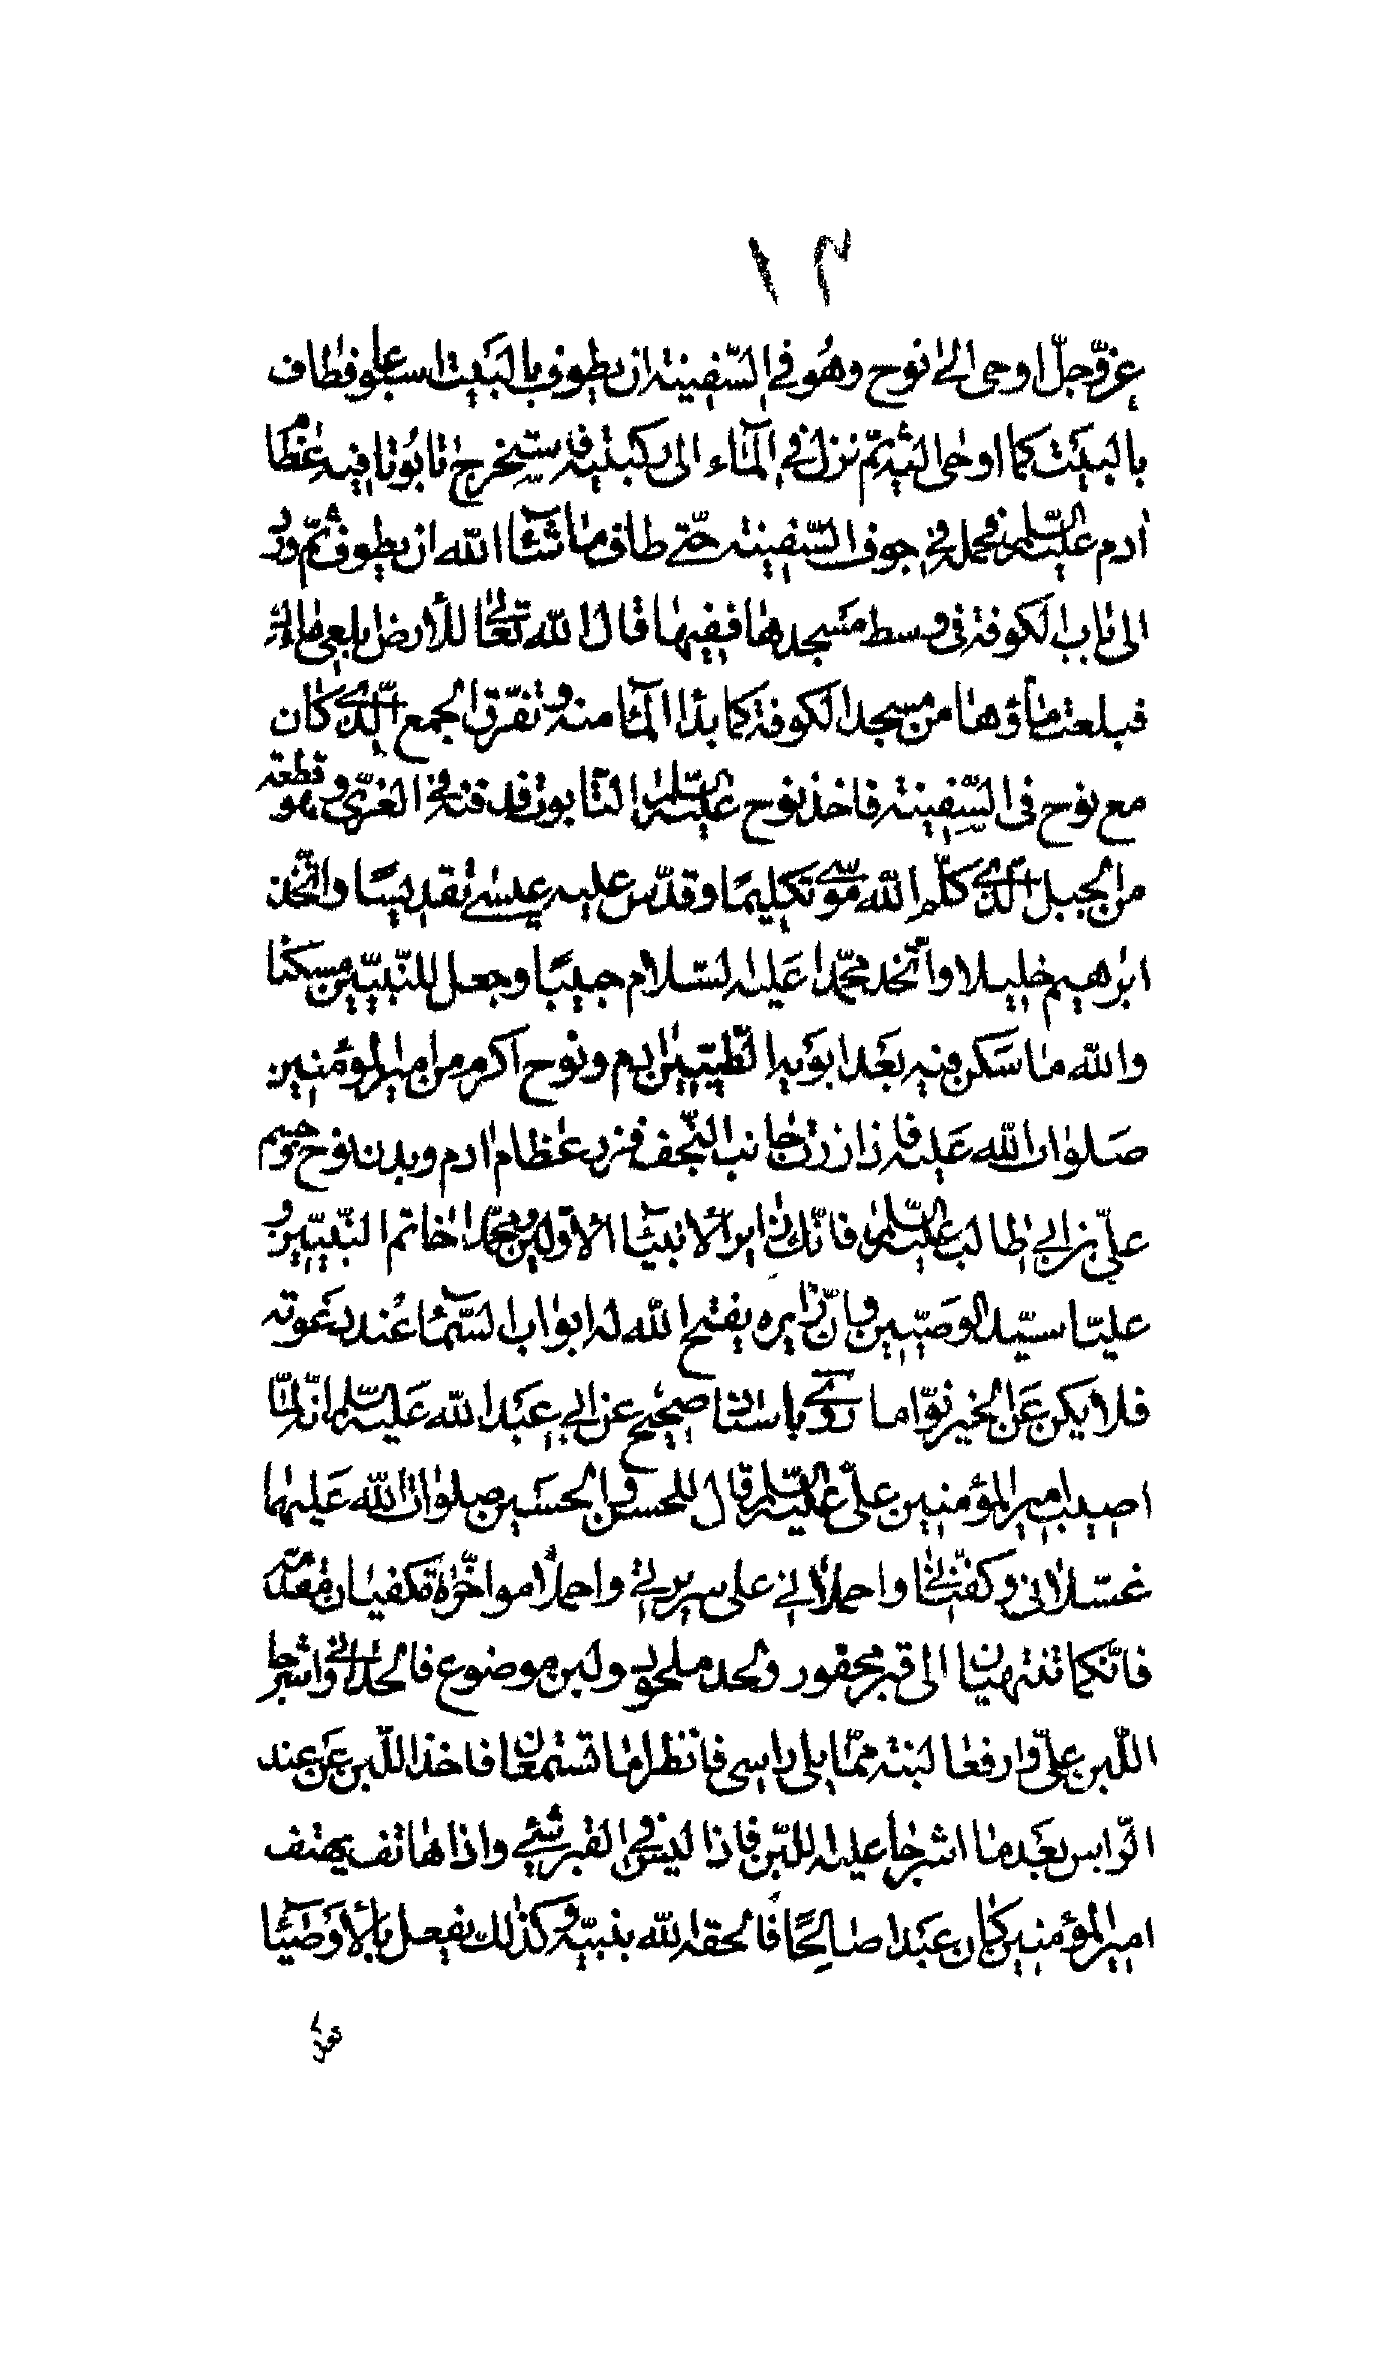 ١٢
عزّ وجلّ اوحى الى نوح وهو في السّفينة ان يطوف بالبيت اسبوعا فطاف
بالبيت كما اوحى اليه ثمّ نزل في المآء الى ركبتيه فاستخرج تابوتا فيه عظام
ادم عليه السّلم فحمله في جوف السّفينة حتّى طاف ما شآء الله ان يطوف ثمّ ورد
الى باب الكوفة في وسط مسجدها ففيها قال الله تعالى للأرض ابلعي ماءك
فبلعت ماؤها من مسجد الكوفة كما بدا المآء منه وتفرّق الجمع الّذي كان
مع نوح في السّفينة فاخذ نوح عليه السّلم التّابوت فدفنه في الغريّ وهو قطعة
من الجبل الّذي كلّم الله موسى تكليمًا وقدّس عليه عيسى تقديسًا واتّخذ
ابرهيم خليلا واتّخذ محمّدا عليه السّلام حبيبًا وجعل للنّبيّين مسكنا
والله ما سكن فيه بعد ابويه الطّيّبين ادم ونوح اكرم من امير المؤمنين
صلوات الله عليه فاذا زرت جانب النّجف فزر عظام ادم وبدن نوح وجسم
عليّ بن ابي طالب عليه السّلم فانّك زاير الانبيآء الاوّلين ومحمّدا خاتم النّبيّين و
عليّا سيّد الوصيّين وانّ زايره يفتح الله له ابواب السّمآء عند دعوته
فلا يكن عن الخير نوّاما روى باسناد صحيح عن ابي عبد الله عليه السّلم انّه لمّا
اصيب امير المؤمنين عليّ عليه السّلم قال للحسن والحسين صلوات الله عليهما
غسّلاني وكفّناني واحملاني على سريري واحملا مواخّره تكفيان مقدّمه
فانّكما تنتهيان الى قبر محفور ولحد ملحود ولبن موضوع فالحداني واشرجا
اللّبن عليّ وارفعا لبنة ممّا يلي راسي فانظرا ما تسمعان فاخذا اللّبن عن عند
الرّاس بعد ما اشرجا عليه اللّبن فاذا ليس في القبر شيء واذا هاتف يهتف
امير المؤمنين كان عبدا صالحًا فالحقه الله بنبيّه وكذلك يفعل بالأوصيآء